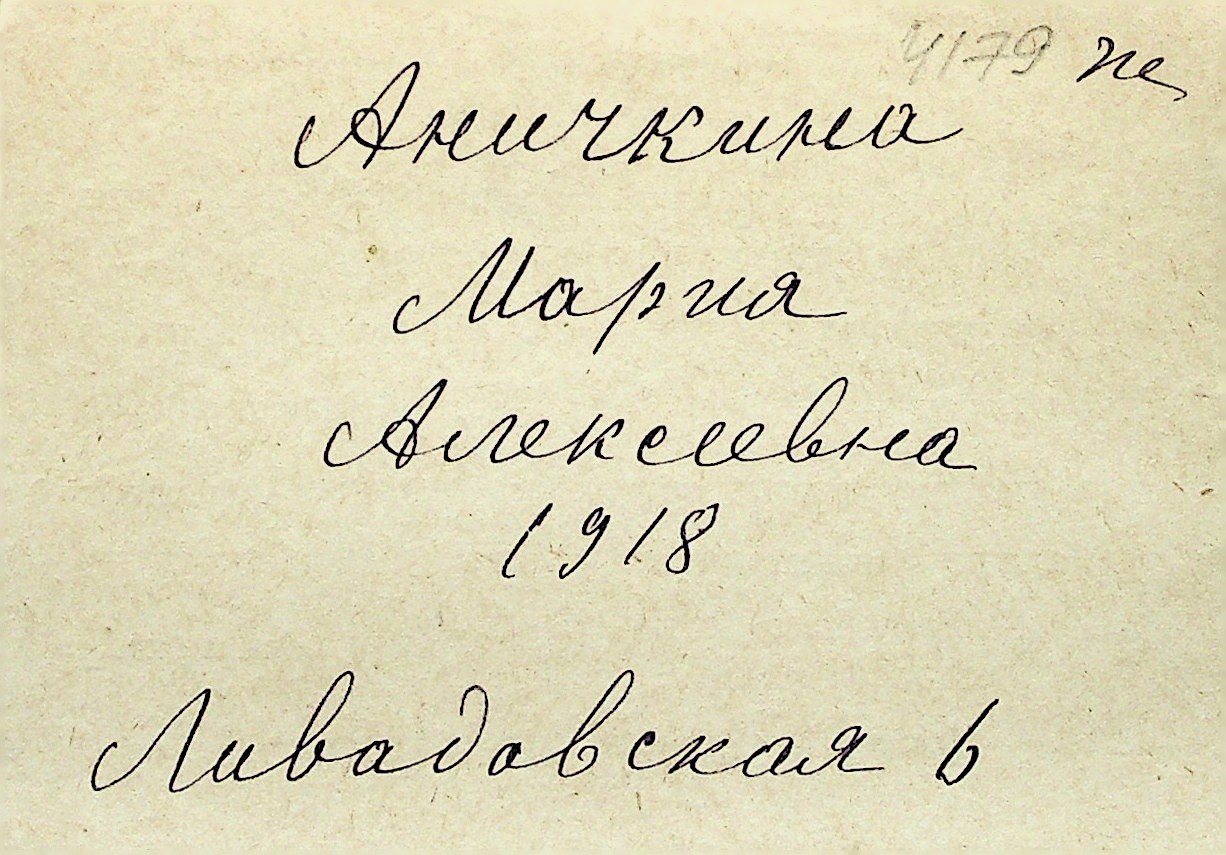 4179 пе
Аничкина
Мария
Алексеевна
1918
Ливадовская 6